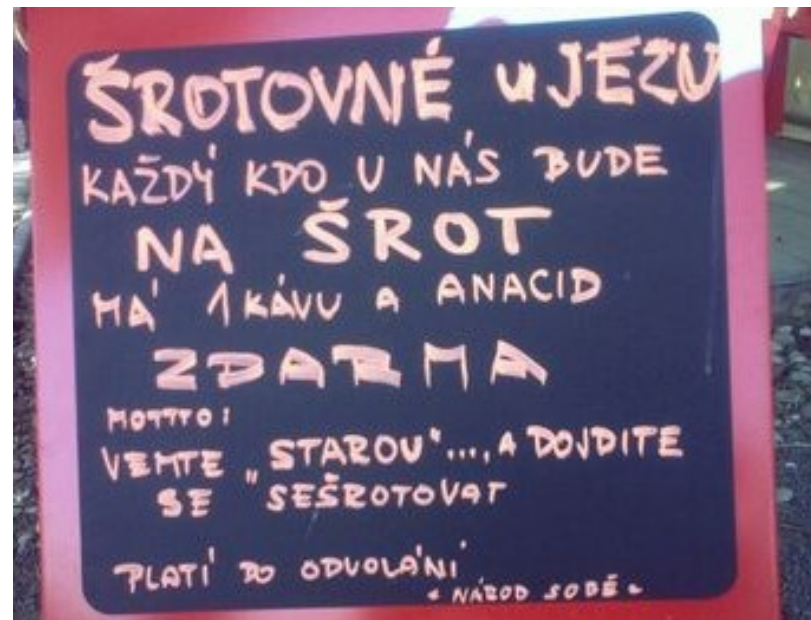 ŠROTOVNÉ u JEZU
KAŽDÝ KDO U NÁS BUDE
NA ŠROT
MÁ 1 KÁVU A ANACID
ZDARMA
MOTTTO:
VEMTE „STAROU"..., A DOJDITE
SE SEŠROTOVAT
PLATÍ DO ODVOLÁNÍ
- NÁROD SOBĚ -